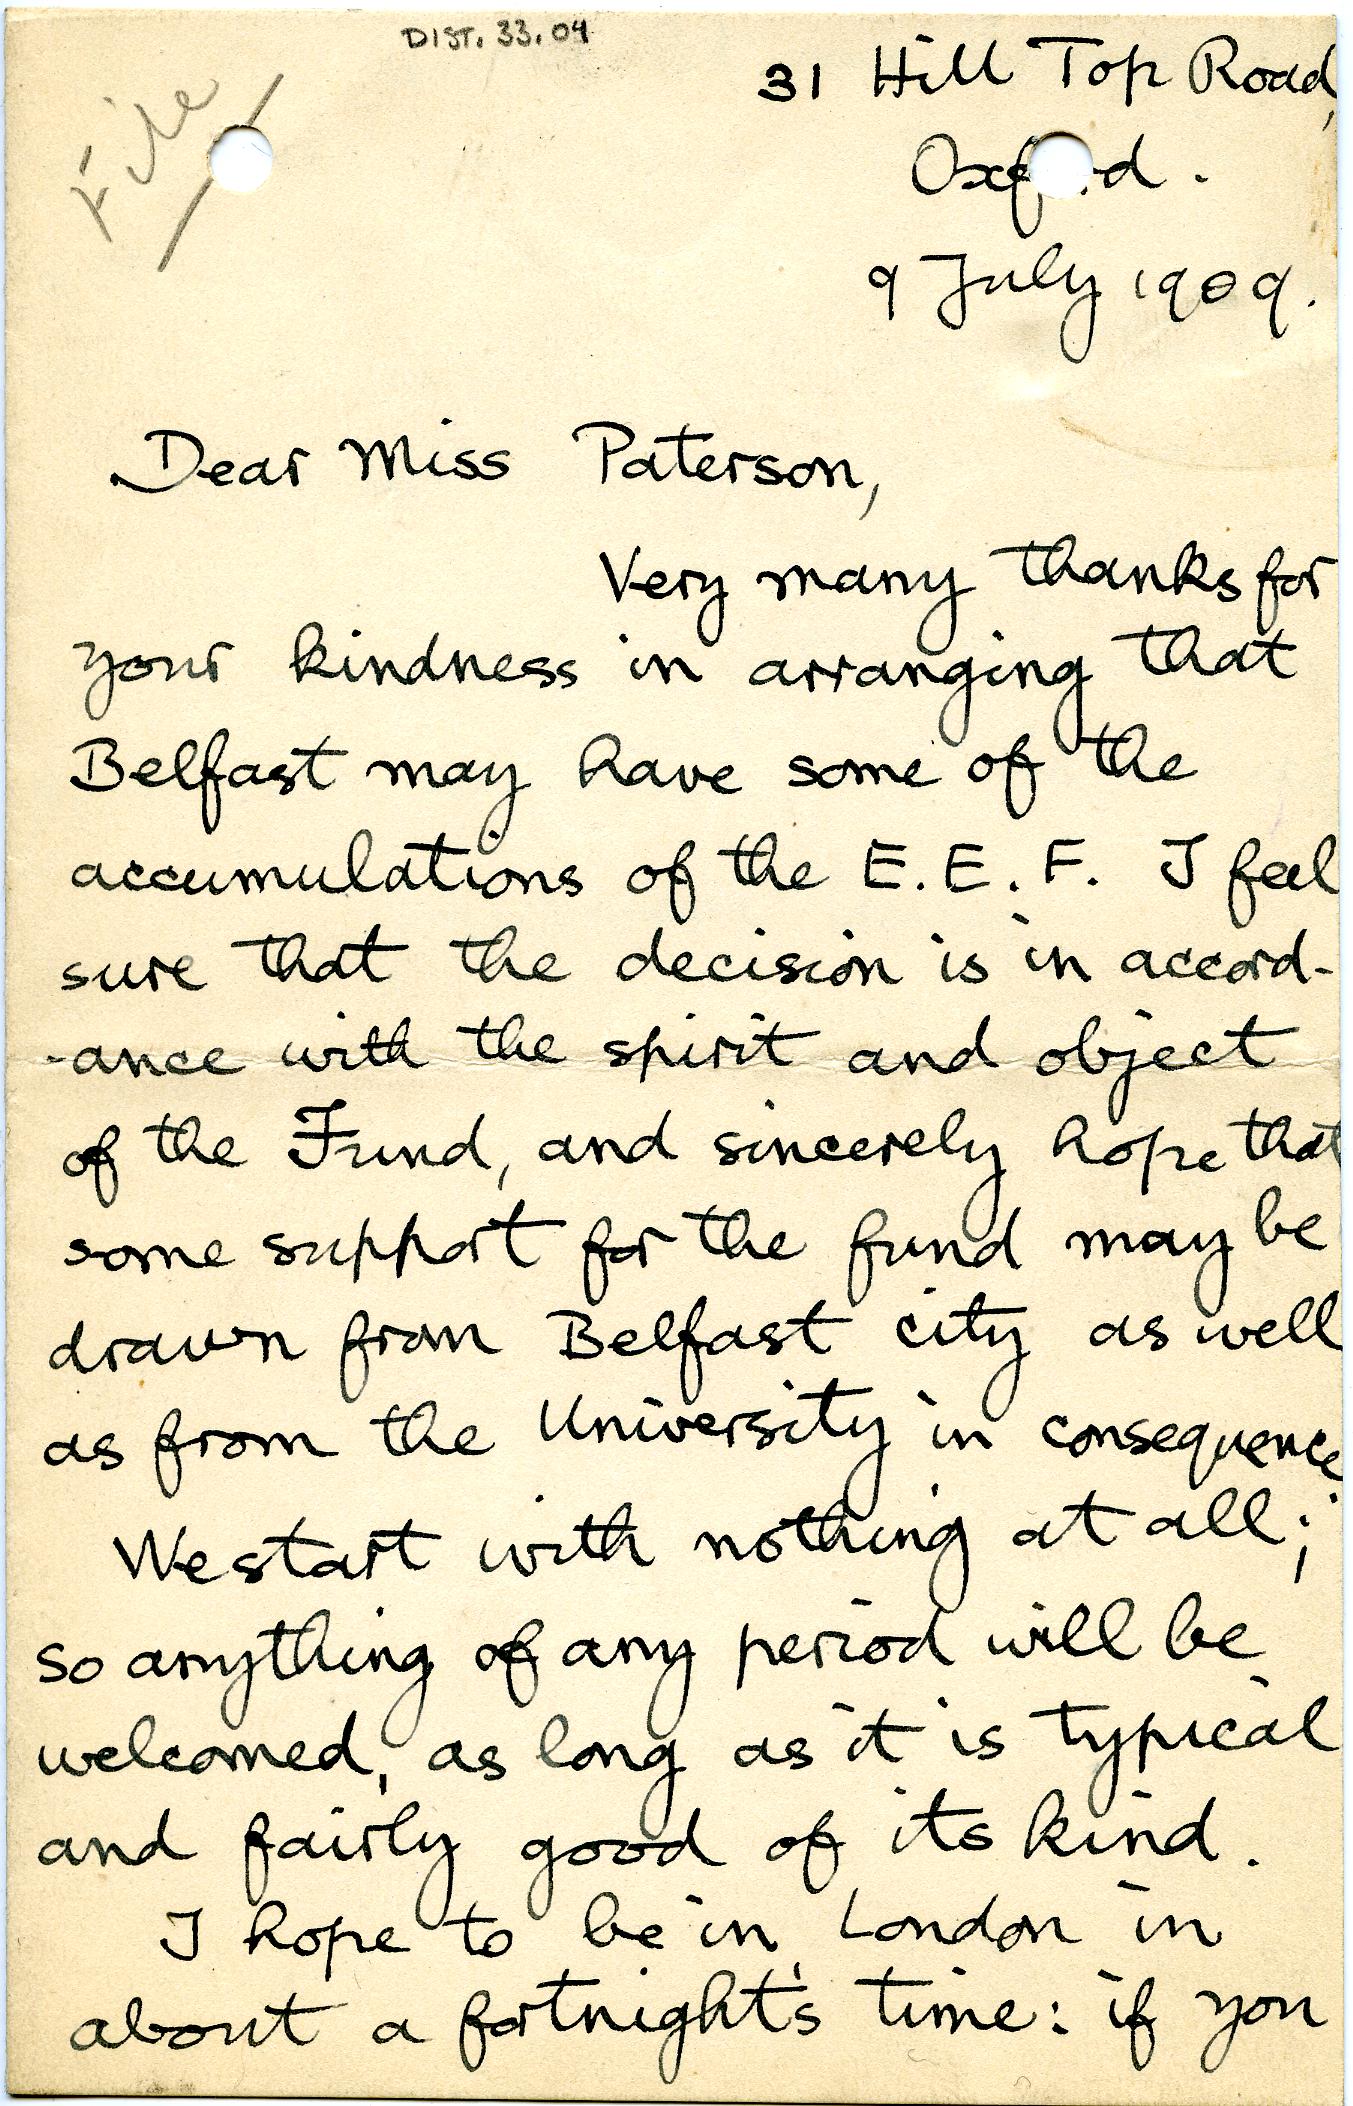 DIST. 33.04
File
31 Hill Top Road,
Oxf d.
9 July 1909.
Dear Miss Paterson,
Very many thanks for
your kindness in arranging that
Belfast may have some of the
accumulations of the E.E.F. I feel
sure that the decision is in accord-
-ance with the spirit and object
of the Fund, and sincerely hope that
some support for the fund may be
drawn from Belfast city as well
as from the University in consequence
We start with nothing at all;
so anything of any period will be
welcomed, as long as it is typical
and fairly good of its kind.
I hope to be in London in
about a fortnight's time: if you